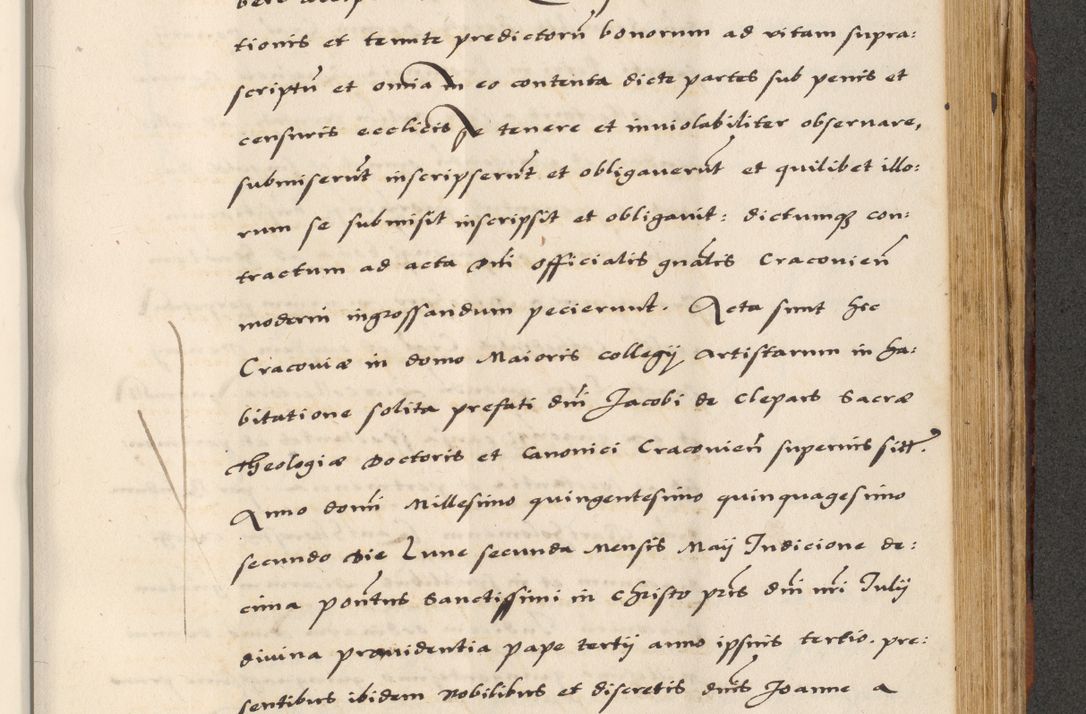 tionis et tenute predictorū bonorum ad vitam supra:
scriptū et om̄ia in eo contenta dicte partes sub penis et
censuris ecclicis se tenere et inviolabiliter observare,
submiserūt inscripserūt et obligaverūt et quilibet illo:
rum se submisit inscripsit et obligavit: dictumqꝫ con:
tractum ad acta Dn̄i officialis gn̄alis Cracovien̄
moderni ingrossandum pecierunt. Acta sunt hec
Cracoviæ in domo Maioris collegij Artistarum in ha:
bitatione solita prefati dn̄i Jacobi de Clepars Sacræ
Theologiæ Doctoris et Canonici Cracovien̄ superius sitt̄.
Anno domī Millesimo quingentesimo quinquagesimo
secundo Die Lune secunda Mensis Maij Indicione de:
cima pon̄tus Sanctissimi in Christo pr̄is dn̄i nr̄i Iulij
divina providentia pape tertij anno ipsius tertio. pre:
sentibus ibidem Nobilibus et discretis dn̄is Joanne a